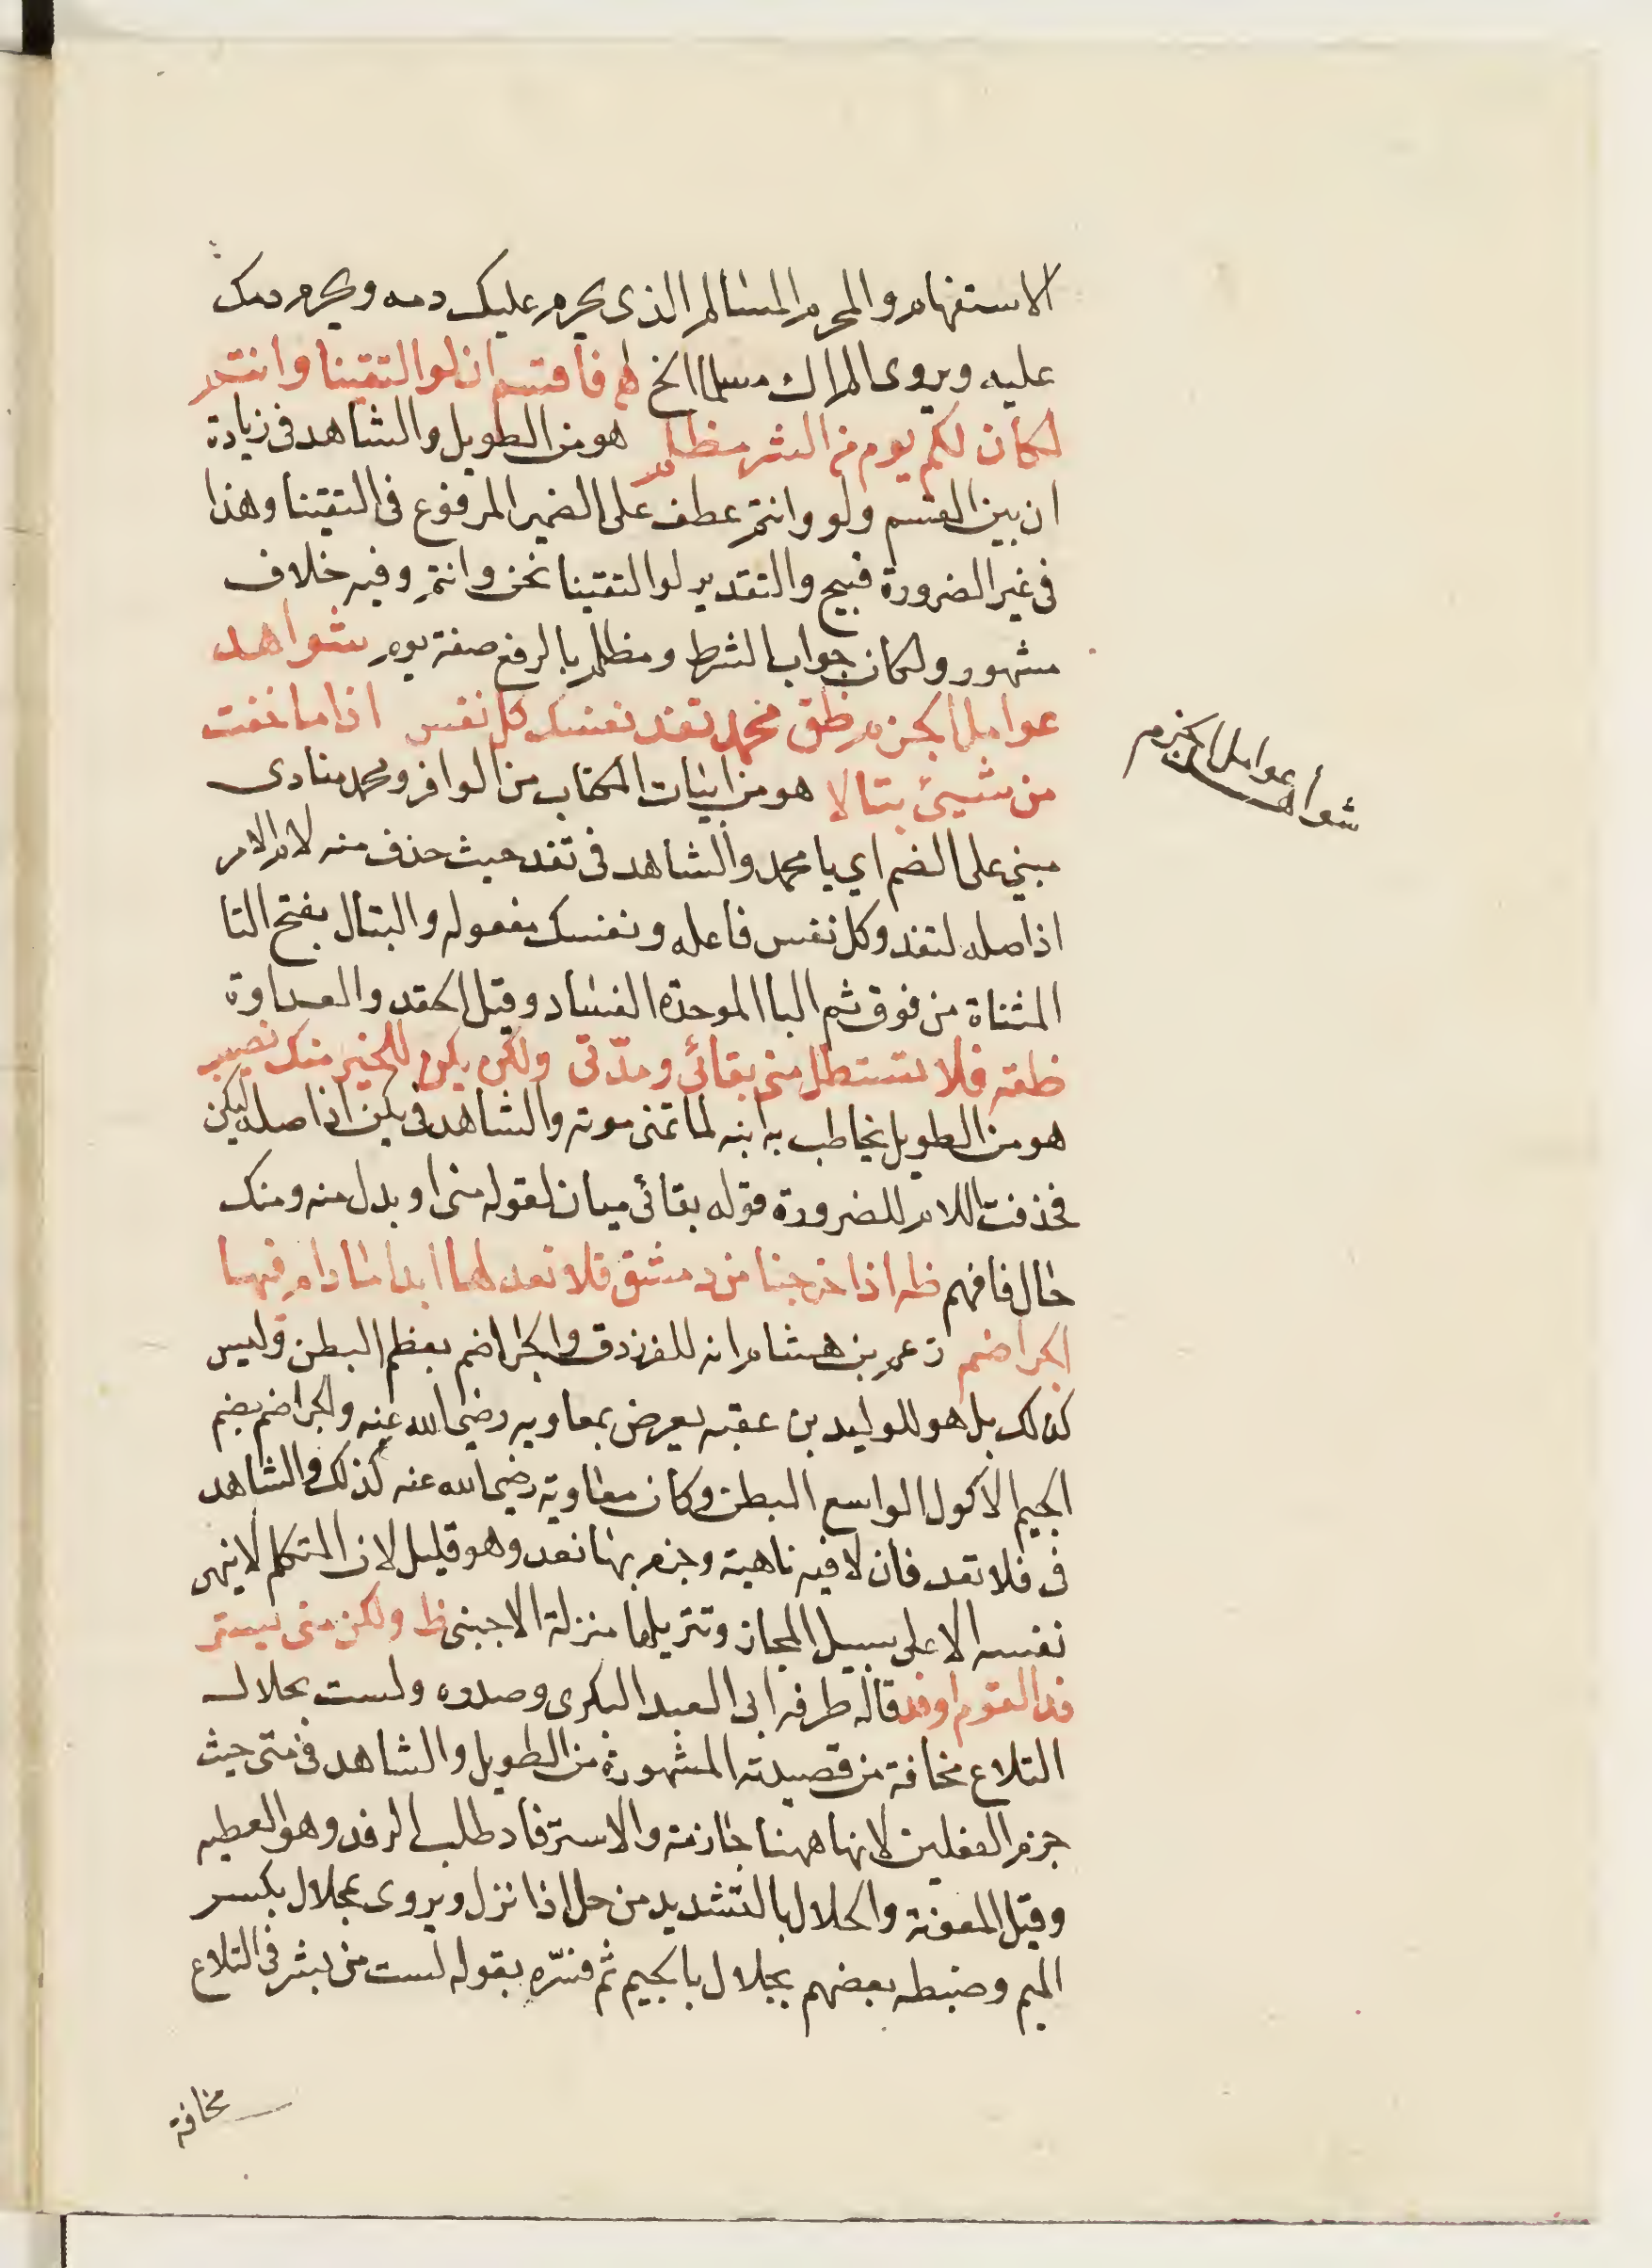 الاستفهام والمحرم المسالم الذى يحرم عليك دمه ويحرم دمك
عليه ويروى الم اك مسلما الخ فاقسم ان لو التقينا وانتم
لكان لكم يوم من الشر مظلم هو من الطويل والشاهد فى زيادة
ان بين القسم ولو وانتم عطف على الضمير المرفوع فى التقينا وهذا
فى غير الضرورة قبيح والتقدير لو التقينا نحن وانتم وفيه خلاف
مشهور ولكان جواب الشرط ومظلم بالرفع صفة يوم شواهد
عوامل الجزم ظق محمد تفد نفسك كل نفس اذا ما خفت
من شيئ تبالا هو من ابيات الكتاب من الوافر ومحمد منادى
مبني على الضم اي يا محمد والشاهد فى تفد حيث حذف منه لام الامر
اذ اصله لتفد وكل نفس فاعله ونفسك مفعوله والتبال بفتح التا
المثناة من فوق ثم البا الموحدة الفساد وقيل الحقد والعداوة
ظقه فلا تستطل منى بقائى ومدّتى ولكن يكن للخير منك نصيب
هو من الطويل يخاطب به ابنه لما تمنى موته والشاهد فى يكن اذ اصله ليكن
فحذفت اللام للضرورة قوله بقائى بيان لقوله منى او بدل منه ومنك
حال فافهم ظه اذا خرجنا من دمشق فلا نعد لها ابدا ما دام فيها
الجراضم زعم بن هشام انه للفرزدق والجراضم بعظم البطن وليس
كذلك بل هو للوليد بن عقبه يعرض بمعاويه رضى الله عنه والجراضم بضم
الجيم الاكول الواسع البطن وكان معاوية رضى الله عنه كذلك والشاهد
فى فلا نعد فان لا فيه ناهية وجزم بها نعد وهو قليل لان المتكلم لا ينهى
نفسه الا على سبيل المجاز وتنزيلها منزلة الاجنبى ظ ولكن متى يستر
فد القوم ارفد قاله طرفه ابن العبد البكرى وصدره ولست بحلال
التلاع مخافة من قصيدته المشهورة من الطويل والشاهد فى متى حيث
جزم الفعلين لانها ههنا جازمة والاسترفاد طلب الرفد وهو العطيه
وقيل المعونة والحلال بالتشديد من حل اذا نزل ويروى بمحلال بكسر
الميم وضبطه بعضهم بجلال بالجيم ثم فسّره بقوله لست من يشر فى التلاع
مخافة
شواهد عوامل الجزم